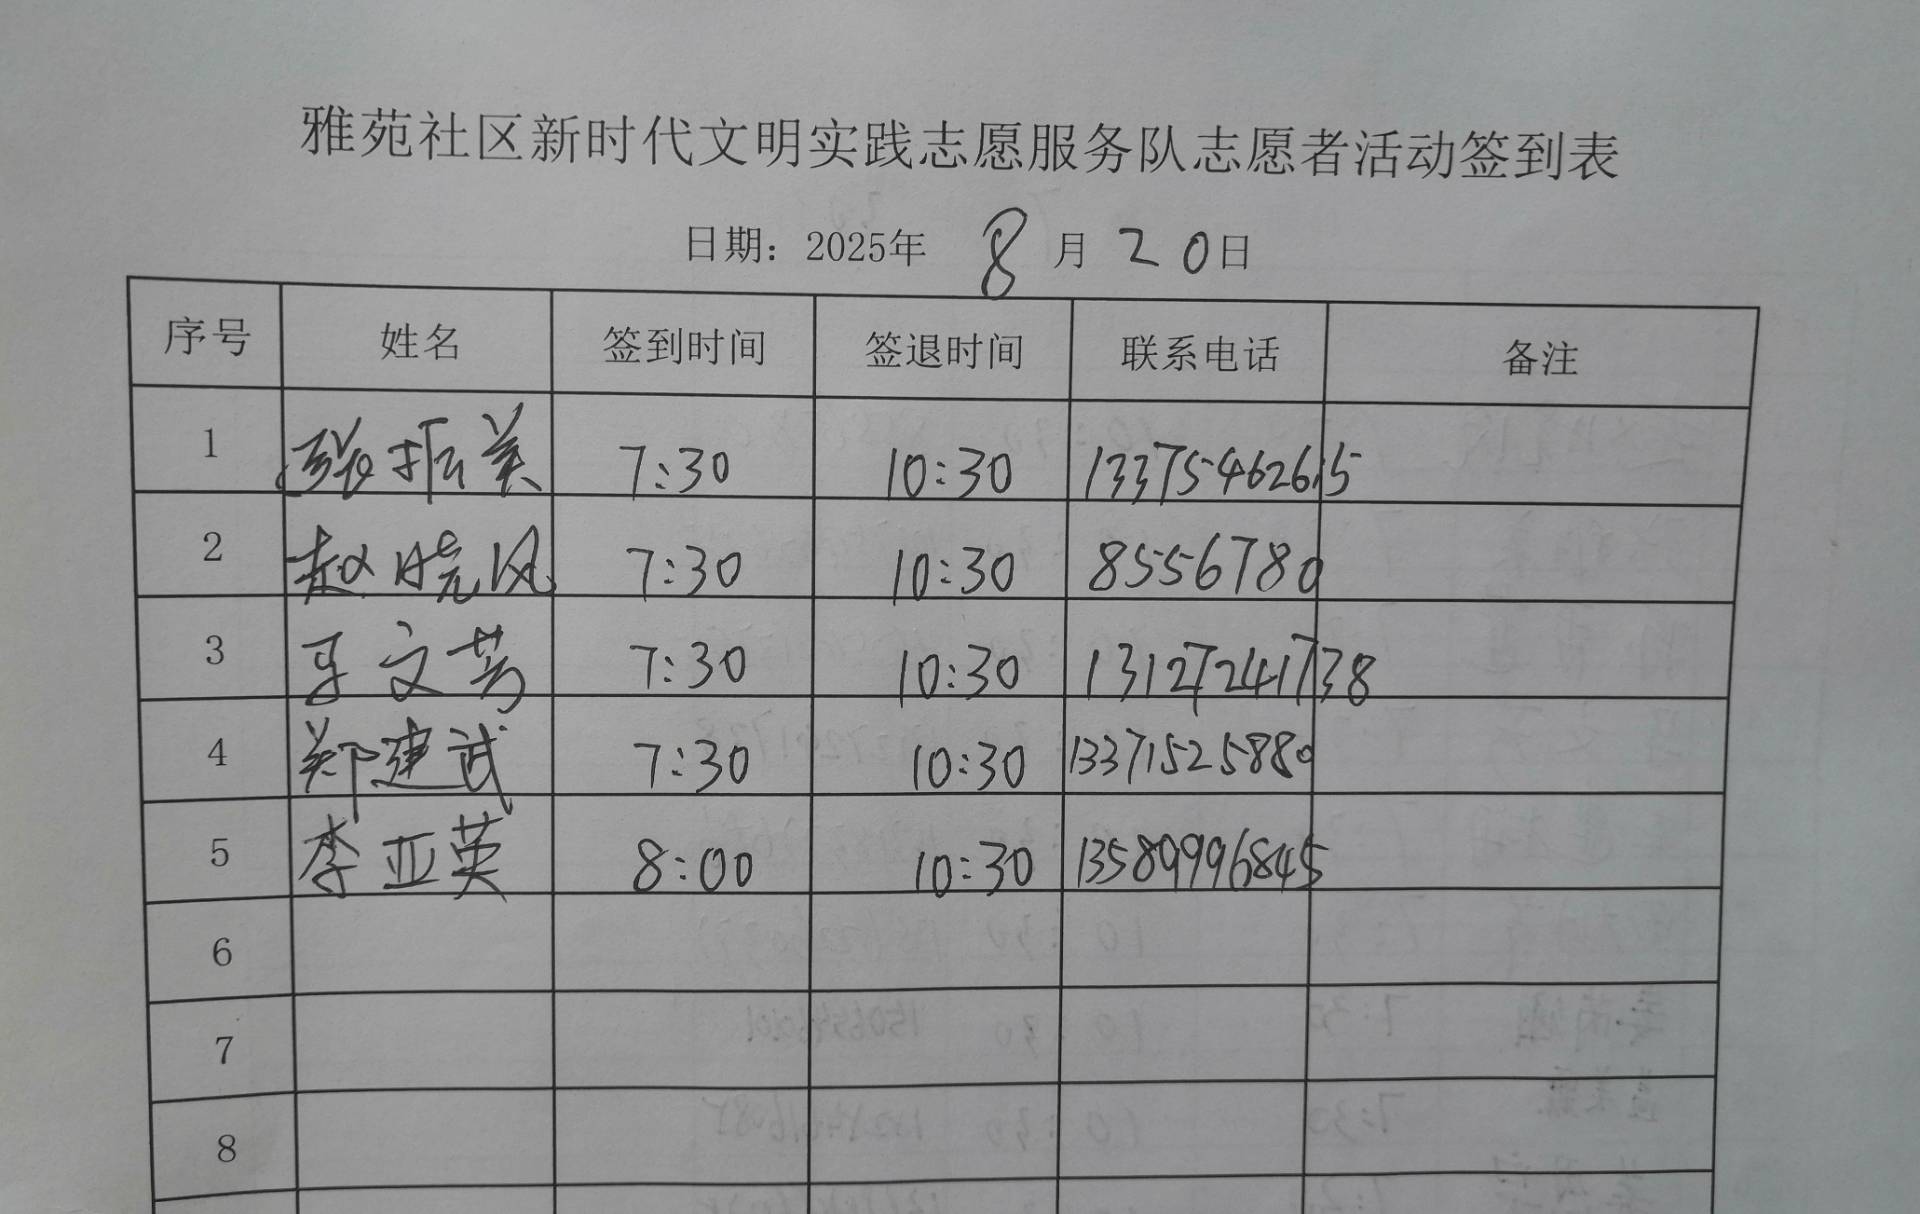 雅苑社区新时代文明实践志愿服务队志愿者活动签到表
日期：2025年 8 月 20日
序号 姓名 签到时间 签退时间 联系电话 备注
1 张振美 7:30 10:30 13375462615
2 赵晓风 7:30 10:30 8556780
3 文芳 7:30 10:30 13127241738
4 郑建武 7:30 10:30 13371525880
5 李亚英 8:00 10:30 13589996845
6
7
8